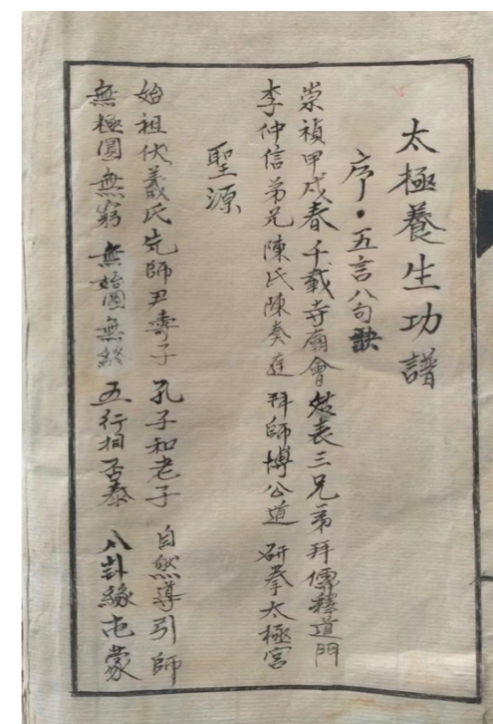 太極養生功譜
序·五言八句訣
崇禎甲戌春 千載寺廟會 姑表三兄弟 拜儒釋道門
李仲信弟兄 陳氏陳奏廷 拜師博公道 研拳太極宮
聖源
始祖伏羲氏 先師尹壽子 孔子和老子 自然導引師
無極圓無窮 無始圓無終 五行相否泰 八卦緣屯蒙